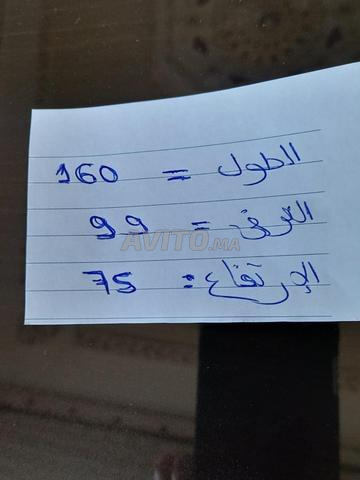 الطول = 160
العرض = 99
AVITO.MA
الإرتفاع: 75